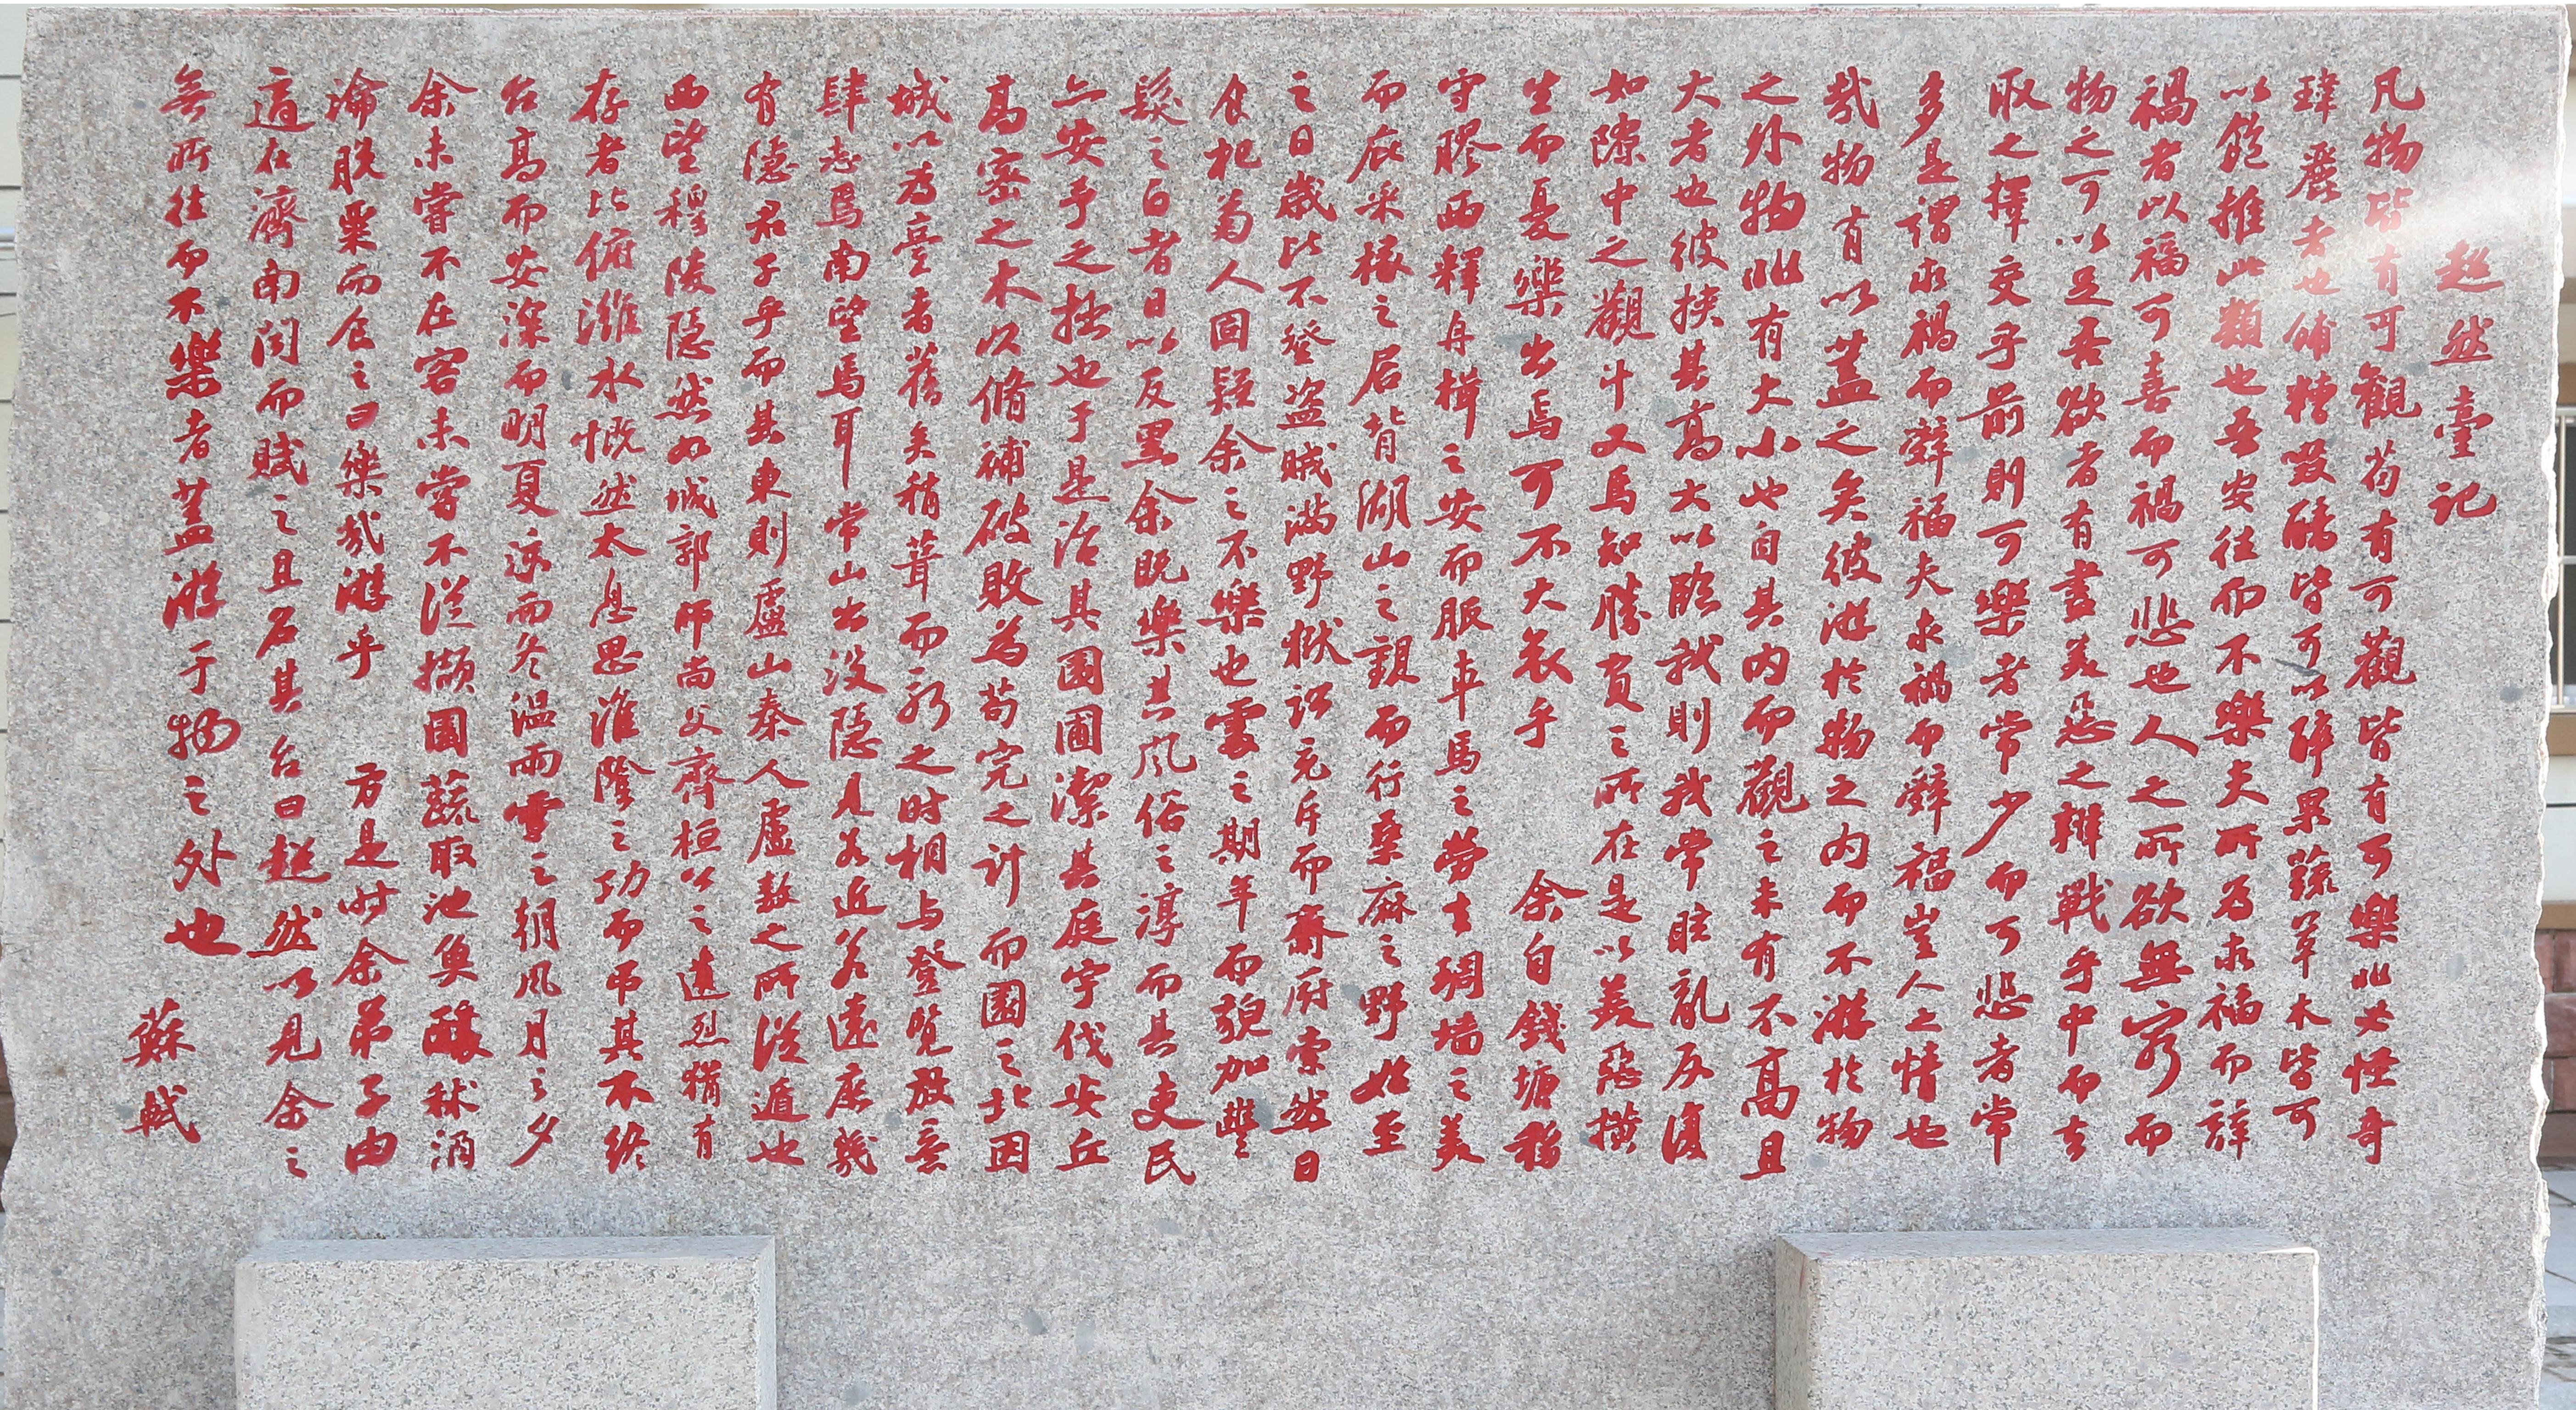 超然臺記
凡物皆有可觀苟有可觀皆有可樂非必怪奇
瑋麗者也餔糟啜醨皆可以醉果蔬草木皆可
以飽推此類也吾安往而不樂夫所為求福而辭
禍者以福可喜而禍可悲也人之所欲無窮而
物之可以足吾欲者有盡美惡之辨戰乎中而去
取之擇交乎前則可樂者常少而可悲者常
多是謂求禍而辭福夫求禍而辭福豈人之情也
哉物有以蓋之矣彼游於物之內而不游於物
之外物非有大小也自其內而觀之未有不高且
大者也彼挾其高大以臨我則我常眩亂反復
如隙中之觀斗又焉知勝負之所在是以美惡橫
生而憂樂出焉可不大哀乎 余自錢塘移
守膠西釋舟楫之安而服車馬之勞去雕墻之美
而庇采椽之居背湖山之觀而行桑麻之野始至
之日歲比不登盜賊滿野獄訟充斥而齋廚索然日
食杞菊人固疑余之不樂也處之期年而貌加豐
髮之白者日以反黑余既樂其風俗之淳而其吏民
亦安予之拙也于是治其園圃潔其庭宇伐安丘
高密之木以脩補破敗為苟完之計而園之北因
城以為臺者舊矣稍葺而新之时相与登覽放意
肆志焉南望馬耳常山出没隱見若近若遠庶幾
有隱君子乎而其東則盧山秦人盧敖之所從遁也
西望穆陵隱然如城郭师尚父齊桓公之遺烈猶有
存者北俯濰水慨然太息思淮陰之功而吊其不終
台高而安深而明夏涼而冬温雨雪之朝风月之夕
余未嘗不在客未嘗不從擷園蔬取池魚釀秫酒
瀹脫粟而食之曰樂哉游乎 方是时余弟子由
適在濟南聞而賦之且名其台曰超然以見余之
無所往而不樂者蓋游于物之外也 蘇軾